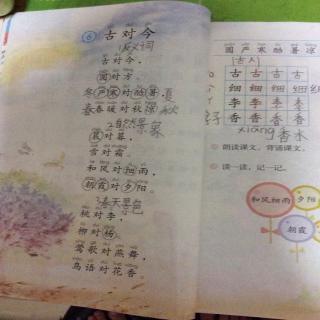 6 古对今
反义词
古对今,
圆对方。
严寒对酷暑, 夏
春暖对秋凉。 秋
2自然景象
晨对暮,
雪对霜。
和风对细雨,
朝霞对夕阳。
3春天景色
桃对李,
柳对杨。
莺歌对燕舞,
鸟语对花香。
圆严寒酷暑凉
古人
古 古 古 古
细 细 细 细
李 李 李 李
香 香 香 香
xiang 香水
朗读课文。背诵课文。
读一读,记一记。
和风细雨
夕阳
朝霞